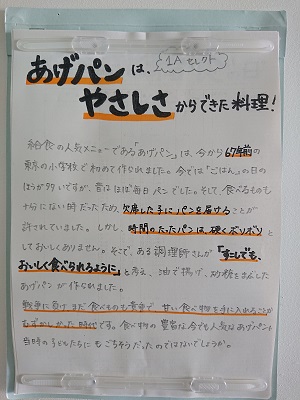 1A セレクト
あげパンは、
やさしさからできた料理！
給食の人気メニューである「あげパン」は、今から67年前の
東京の小学校で初めて作られました。今では「ごはん」の日の
ほうが多いですが、昔はほぼ毎日パンでした。そして、食べるものも
十分にない時だったため、欠席した子にパンを届けることが
許されていました。しかし、時間のたったパンは、硬くボソボソ
としておいしくありません。そこで、ある調理師さんが「すこしでも、
おいしく食べられるように」と考え、油で揚げ、砂糖をまぶした
あげパンが作られました。
戦争に負け、まだ食べものも貴重で、甘い食べ物を手に入れることが
むずかしかった時代です。食べ物の豊富な今でも人気なあげパンは
当時の子どもたちにもごちそうだったのではないでしょうか。